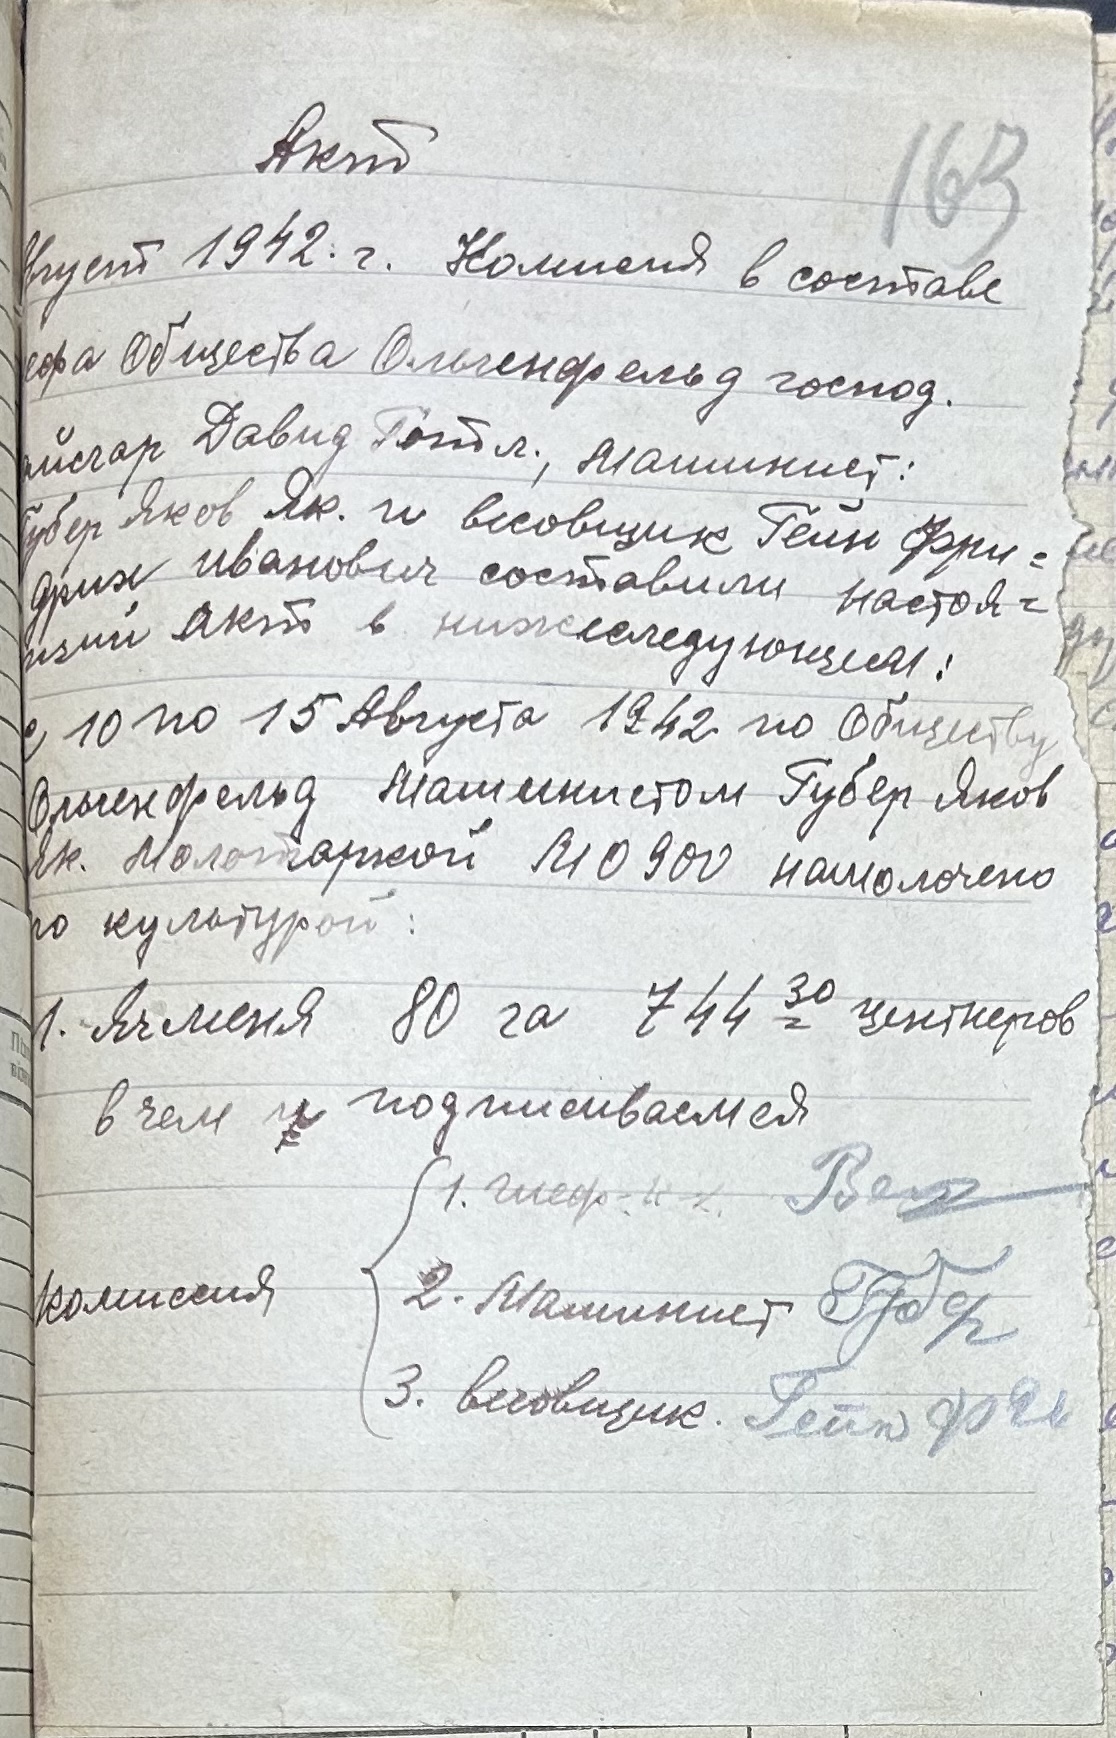 163
Акт
Август 1942. г. Комисия в составе
шефа Общества Ольгенфельд господ.
Давид Готл., Машинист:
Губер Яков Як. и весовщик Гейн Фри=
дрих Иванович составили настоя=
щий Акт в нижеследующем:
с 10 по 15 Августа 1942 по Обществу
Ольгенфельд Машинистом Губер Яков
Як. Молотаркой МО 900 намолочено
по культурой:
1. Ячменя 80 га 744 30 центнеров
в чем и подписиваемся
1. шеф
комиссия
2. Машинист Губер
3. весовщик. Гейн